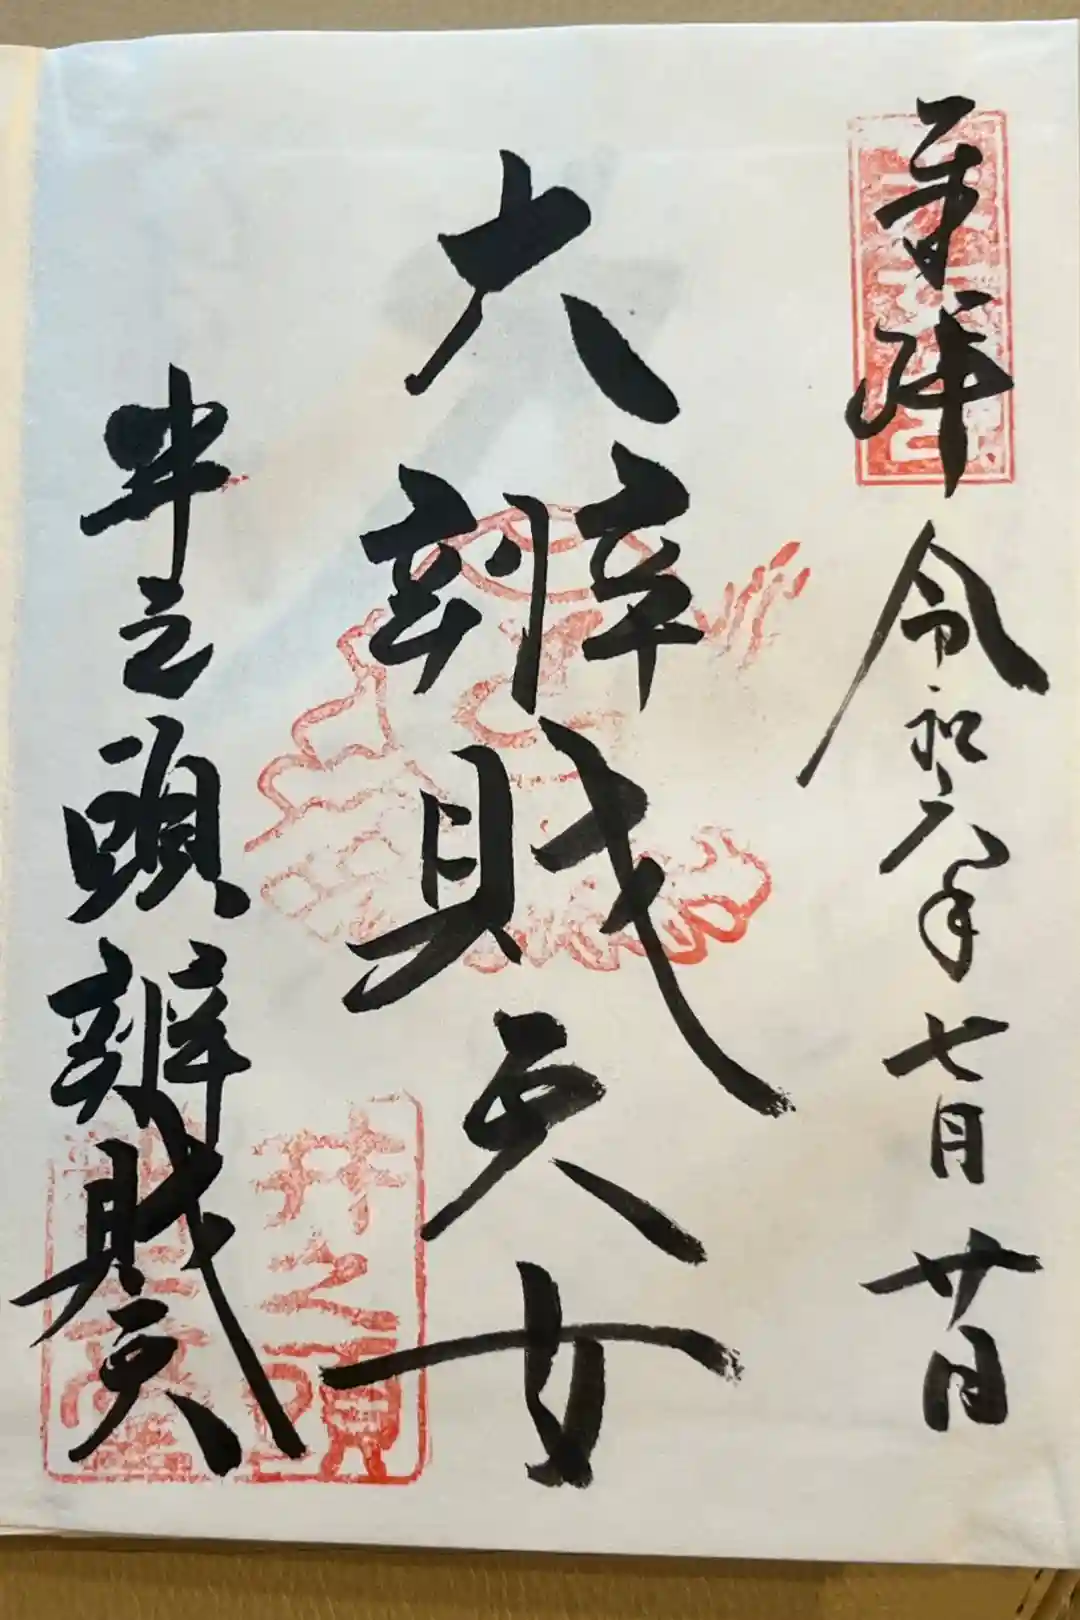 奉拝
令和六年七月廿日
大辨財天女
井之頭辨財天
井之頭